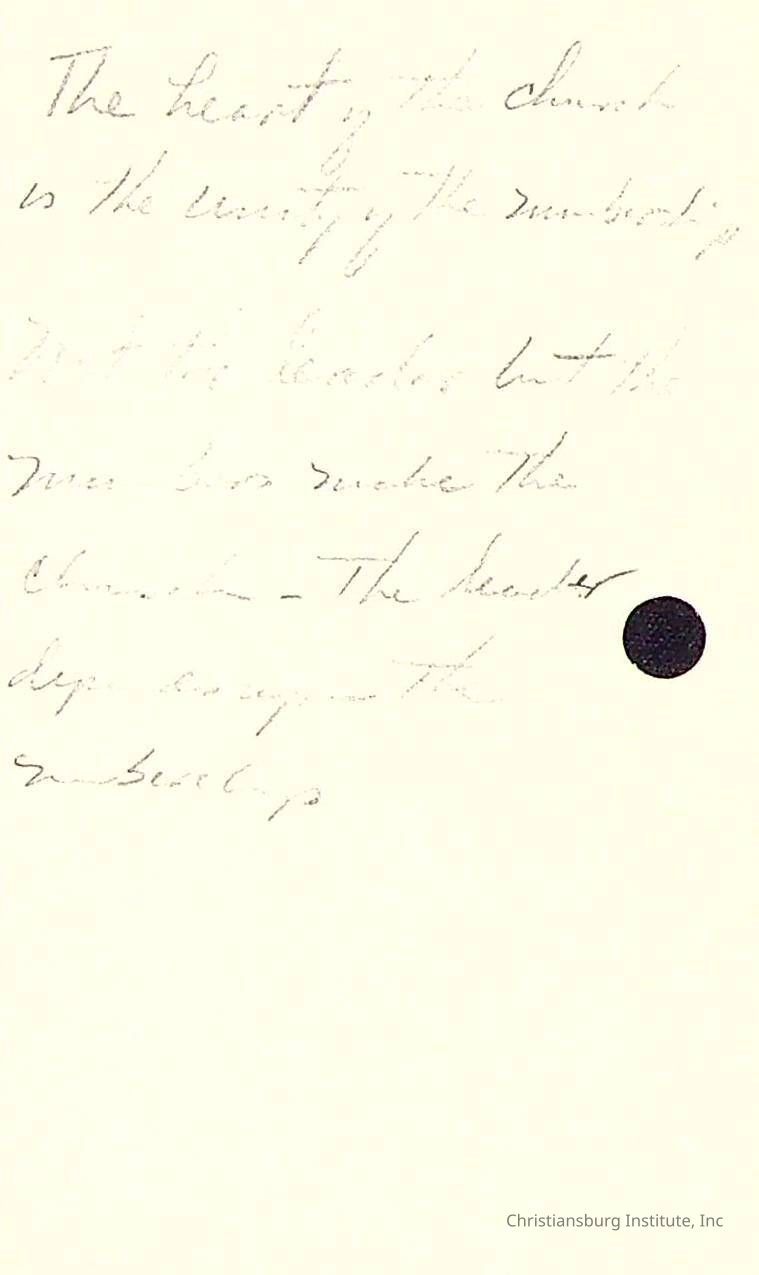 The heart of the church
is the unity of the membership
Not the leader but the
members make the
church - The leader
depends upon the
membership
Christiansburg Institute, Inc